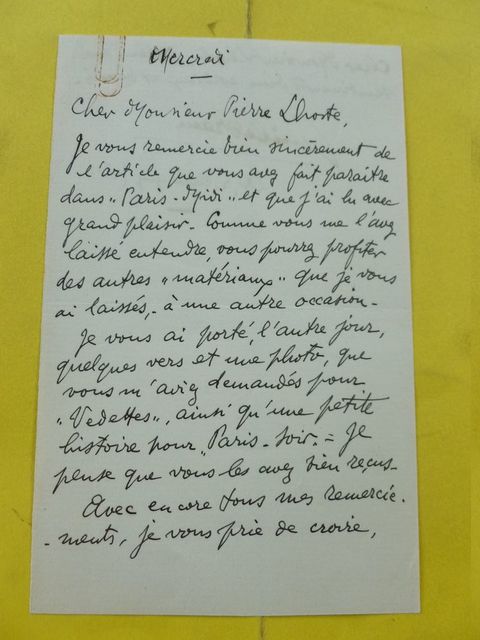 Mercredi
Cher Monsieur Pierre Lhoste,
Je vous remercie bien sincèrement de
l'article que vous avez fait paraitre
dans "Paris-Midi" et que j'ai lu avec
grand plaisir. Comme vous me l'avez
laissé entendre, vous pourrez profiter
des autres "matériaux" que je vous
ai laissés, - à une autre occasion -
Je vous ai porté, l'autre jour,
quelques vers et une photo, que
vous m'aviez demandés pour
"Vedettes", ainsi qu'une petite
histoire pour "Paris-Soir" = Je
pense que vous les avez bien reçus -
Avec encore tous mes remercie-
-ments, je vous prie de croire,